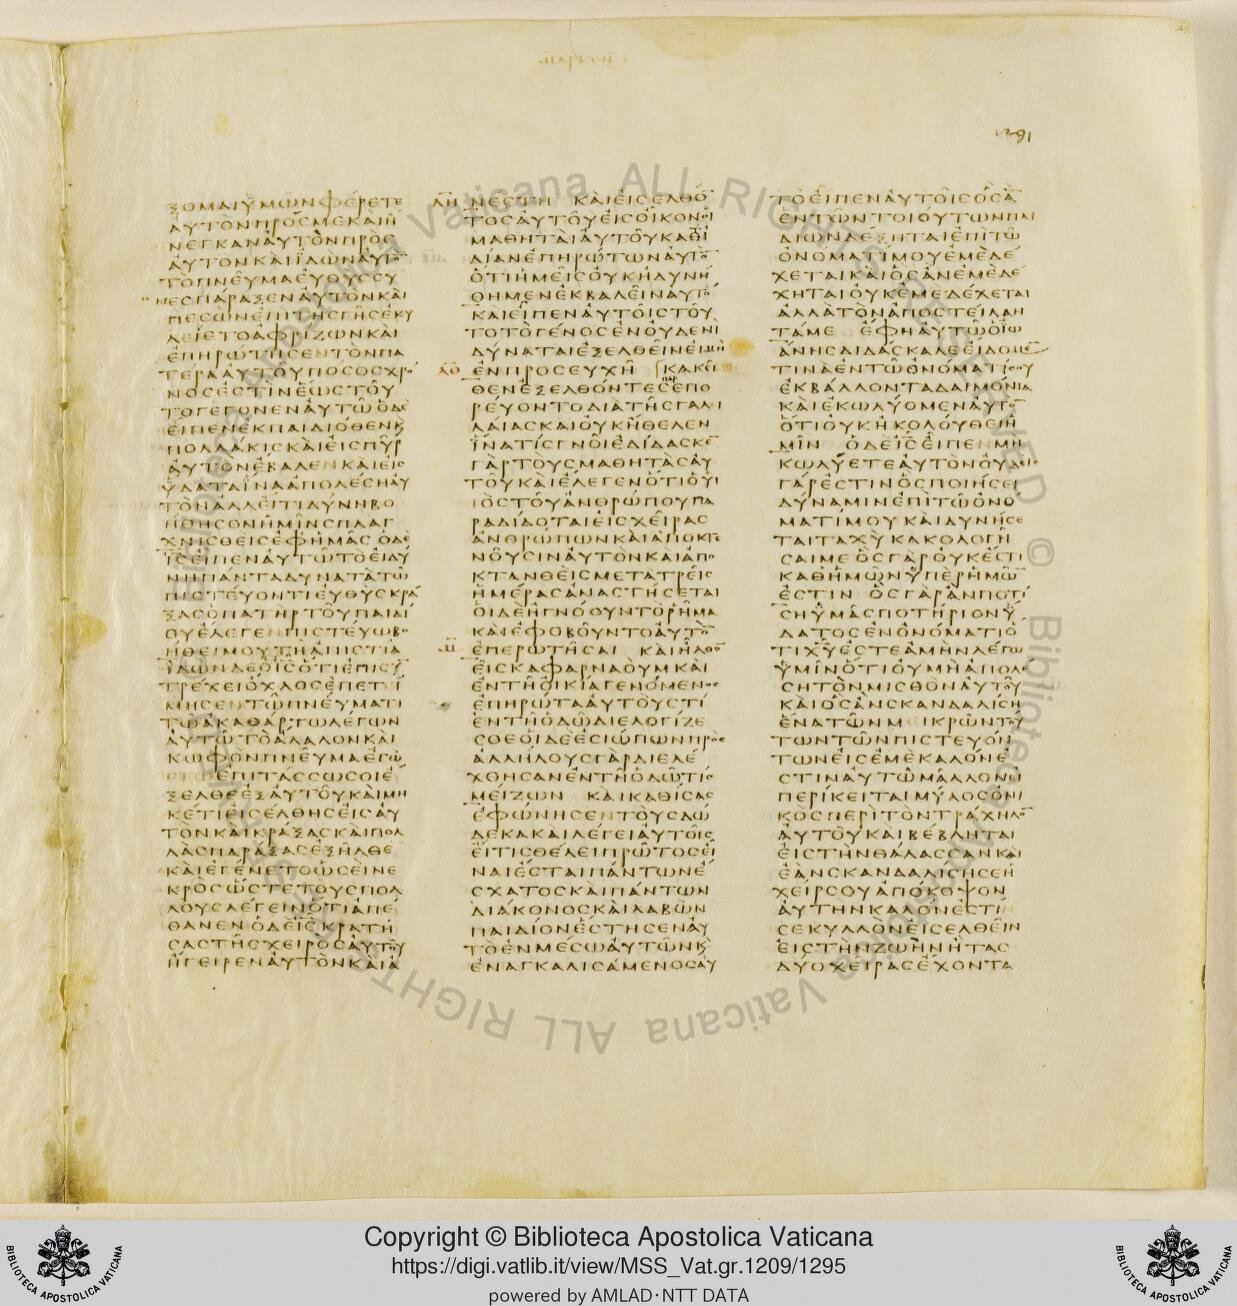 1291
ΖΟΜΑΙΫΜΩΝΦΕΡΕΤΕ
ΑΥΤΟΝΠΡΟΣΜΕΚΑΙΗ
ΝΕΓΚΑΝΑΥΤΟΝΠΡΟΣ
ΑΥΤΟΝΚΑΙΪΔΩΝΑΥΤΟ
ΤΟΠΝΕΥΜΑΕΥΘΥΣΣΥ
ΝΕΣΠΑΡΑΞΕΝΑΥΤΟΝΚΑΙ
ΠΕΣΩΝΕΠΙΤΗΣΓΗΣΕΚΥ
ΛΕΙΕΤΟΑΦΡΙΖΩΝΚΑΙ
ΕΠΗΡΩΤΗΣΕΝΤΟΝΠΑ
ΤΕΡΑΑΥΤΟΥΠΟΣΟΣΧΡΟ
ΝΟΣΕΣΤΙΝΕΩΣΤΟΥ
ΤΟΓΕΓΟΝΕΝΑΥΤΩΟΔΕ
ΕΙΠΕΝΕΚΠΑΙΔΙΟΘΕΝΚ
ΠΟΛΛΑΚΙΣΚΑΙΕΙΣΠΥΡ
ΑΥΤΟΝΕΒΑΛΕΝΚΑΙΕΙΣ
ΫΔΑΤΑΪΝΑΑΠΟΛΕΣΗΑΥ
ΤΟΝΑΛΛΕΙΤΙΔΥΝΗΒΟ
ΗΘΗΣΟΝΗΜΙΝΣΠΛΑΓ
ΧΝΙΣΘΕΙΣΕΦΗΜΑΣΟΔΕ
ΙΣΕΙΠΕΝΑΥΤΩΤΟΕΙΔΥ
ΝΗΠΑΝΤΑΔΥΝΑΤΑΤΩ
ΠΙΣΤΕΥΟΝΤΙΕΥΘΥΣΚΡΑ
ΞΑΣΟΠΑΤΗΡΤΟΥΠΑΙΔΙ
ΟΥΕΛΕΓΕΠΙΣΤΕΥΩΒΟ
ΗΘΕΙΜΟΥΤΗΑΠΙΣΤΙΑ
ΪΔΩΝΔΕΟΙΣΟΤΙΕΠΙΣΥ
ΤΡΕΧΕΙΟΧΛΟΣΕΠΕΤΕΙ
ΜΗΣΕΝΤΩΠΝΕΥΜΑΤΙ
ΤΩΑΚΑΘΑΡΤΩΛΕΓΩΝ
ΑΥΤΩΤΟΑΛΑΛΟΝΚΑΙ
ΚΩΦΟΝΠΝΕΥΜΑΕΓΩ
ΕΠΙΤΑΣΣΩΣΟΙΕ
ΞΕΛΘΕΕΞΑΥΤΟΥΚΑΙΜΗ
ΚΕΤΙΕΙΣΕΛΘΗΣΕΙΣΑΥ
ΤΟΝΚΑΙΚΡΑΞΑΣΚΑΙΠΟΛ
ΛΑΣΠΑΡΑΞΑΣΕΞΗΛΘΕ
ΚΑΙΕΓΕΝΕΤΟΩΣΕΙΝΕ
ΚΡΟΣΩΣΤΕΤΟΥΣΠΟΛ
ΛΟΥΣΛΕΓΕΙΝΟΤΙΑΠΕ
ΘΑΝΕΝΟΔΕΙΣΚΡΑΤΗ
ΣΑΣΤΗΣΧΕΙΡΟΣΑΥΤΟΥ
ΗΓΕΙΡΕΝΑΥΤΟΝΚΑΙΑ
ΛΗ ΝΕΣΤΗ ΚΑΙΕΙΣΕΛΘΟ
ΤΟΣΑΥΤΟΥΕΙΣΟΙΚΟΝΟΙ
ΜΑΘΗΤΑΙΑΥΤΟΥΚΑΘΙ
ΔΙΑΝΕΠΗΡΩΤΩΝΑΥΤΟ
ΟΤΙΗΜΕΙΣΟΥΚΗΔΥΝΗ
ΘΗΜΕΝΕΚΒΑΛΕΙΝΑΥΤΟ
ΚΑΙΕΙΠΕΝΑΥΤΟΙΣΤΟΥ
ΤΟΤΟΓΕΝΟΣΕΝΟΥΔΕΝΙ
ΔΥΝΑΤΑΙΕΞΕΛΘΕΙΝΕΙΜΗ
ΛΘ ΕΝΠΡΟΣΕΥΧΗ ΚΑΚΕΙ
ΘΕΝΕΞΕΛΘΟΝΤΕΣΕΠΟ
ΡΕΥΟΝΤΟΔΙΑΤΗΣΓΑΛΙ
ΛΑΙΑΣΚΑΙΟΥΚΗΘΕΛΕΝ
ΪΝΑΤΙΣΓΝΟΙΕΔΙΔΑΣΚΕ
ΓΑΡΤΟΥΣΜΑΘΗΤΑΣΑΥ
ΤΟΥΚΑΙΕΛΕΓΕΝΟΤΙΟΥΙ
ΙΟΣΤΟΥΑΝΘΡΩΠΟΥΠΑ
ΡΑΔΙΔΟΤΑΙΕΙΣΧΕΙΡΑΣ
ΑΝΘΡΩΠΩΝΚΑΙΑΠΟΚΤΕ
ΝΟΥΣΙΝΑΥΤΟΝΚΑΙΑΠΟ
ΚΤΑΝΘΕΙΣΜΕΤΑΤΡΕΙΣ
ΗΜΕΡΑΣΑΝΑΣΤΗΣΕΤΑΙ
ΟΙΔΕΗΓΝΟΟΥΝΤΟΡΗΜΑ
ΚΑΙΕΦΟΒΟΥΝΤΟΑΥΤΟ
Μ ΕΠΕΡΩΤΗΣΑΙ ΚΑΙΗΛΘΟ
ΕΙΣΚΑΦΑΡΝΑΟΥΜΚΑΙ
ΕΝΤΗΟΙΚΙΑΓΕΝΟΜΕΝΟΣ
ΕΠΗΡΩΤΑΑΥΤΟΥΣΤΙ
ΕΝΤΗΟΔΩΔΙΕΛΟΓΙΖΕ
ΣΘΕΟΙΔΕΕΣΙΩΠΩΝΠΡΟΣ
ΑΛΛΗΛΟΥΣΓΑΡΔΙΕΛΕ
ΧΘΗΣΑΝΕΝΤΗΟΔΩΤΙΣ
ΜΕΙΖΩΝ ΚΑΙΚΑΘΙΣΑΣ
ΕΦΩΝΗΣΕΝΤΟΥΣΔΩ
ΔΕΚΑΚΑΙΛΕΓΕΙΑΥΤΟΙΣ
ΕΙΤΙΣΘΕΛΕΙΠΡΩΤΟΣΕΙ
ΝΑΙΕΣΤΑΙΠΑΝΤΩΝΕ
ΣΧΑΤΟΣΚΑΙΠΑΝΤΩΝ
ΔΙΑΚΟΝΟΣΚΑΙΛΑΒΩΝ
ΠΑΙΔΙΟΝΕΣΤΗΣΕΝΑΥ
ΤΟΕΝΜΕΣΩΑΥΤΩΝΚ
ΕΝΑΓΚΑΛΙΣΑΜΕΝΟΣΑΥ
ΤΟΕΙΠΕΝΑΥΤΟΙΣΟΣΑ
ΕΝΤΩΝΤΟΙΟΥΤΩΝΠΑΙ
ΔΙΩΝΔΕΞΗΤΑΙΕΠΙΤΩ
ΟΝΟΜΑΤΙΜΟΥΕΜΕΔΕ
ΧΕΤΑΙΚΑΙΟΣΑΝΕΜΕΔΕ
ΧΗΤΑΙΟΥΚΕΜΕΔΕΧΕΤΑΙ
ΑΛΛΑΤΟΝΑΠΟΣΤΕΙΛΑΝ
ΤΑΜΕ ΕΦΗΑΥΤΩΟΪΩ
ΑΝΗΣΔΙΔΑΣΚΑΛΕΕΙΔΟΜΕ
ΤΙΝΑΕΝΤΩΟΝΟΜΑΤΙΣΟΥ
ΕΚΒΑΛΛΟΝΤΑΔΑΙΜΟΝΙΑ
ΚΑΙΕΚΩΛΥΟΜΕΝΑΥΤΟ
ΟΤΙΟΥΚΗΚΟΛΟΥΘΕΙΗ
ΜΙΝ ΟΔΕΙΣΕΙΠΕΝΜΗ
ΚΩΛΥΕΤΕΑΥΤΟΝΟΥΔΕΙΣ
ΓΑΡΕΣΤΙΝΟΣΠΟΙΗΣΕΙ
ΔΥΝΑΜΙΝΕΠΙΤΩΟΝΟ
ΜΑΤΙΜΟΥΚΑΙΔΥΝΗΣΕ
ΤΑΙΤΑΧΥΚΑΚΟΛΟΓΗ
ΣΑΙΜΕΟΣΓΑΡΟΥΚΕΣΤΙ
ΚΑΘΗΜΩΝΫΠΕΡΗΜΩ
ΕΣΤΙΝ ΟΣΓΑΡΑΝΠΟΤΙ
ΣΗΫΜΑΣΠΟΤΗΡΙΟΝΫ
ΔΑΤΟΣΕΝΟΝΟΜΑΤΙΟ
ΤΙΧΥΕΣΤΕΑΜΗΝΛΕΓΩ
ΫΜΙΝΟΤΙΟΥΜΗΑΠΟΛΕ
ΣΗΤΟΝΜΙΣΘΟΝΑΥΤΟΥ
ΚΑΙΟΣΑΝΣΚΑΝΔΑΛΙΣΗ
ΕΝΑΤΩΝΜΕΙΚΡΩΝΤΟΥ
ΤΩΝΤΩΝΠΙΣΤΕΥΟΝ
ΤΩΝΕΙΣΕΜΕΚΑΛΟΝΕ
ΣΤΙΝΑΥΤΩΜΑΛΛΟΝΕΙ
ΠΕΡΙΚΕΙΤΑΙΜΥΛΟΣΟΝΙ
ΚΟΣΠΕΡΙΤΟΝΤΡΑΧΗΛΟ
ΑΥΤΟΥΚΑΙΒΕΒΛΗΤΑΙ
ΕΙΣΤΗΝΘΑΛΑΣΣΑΝΚΑΙ
ΕΑΝΣΚΑΝΔΑΛΙΣΗΣΕΗ
ΧΕΙΡΣΟΥΑΠΟΚΟΨΟΝ
ΑΥΤΗΝΚΑΛΟΝΕΣΤΙ
ΣΕΚΥΛΛΟΝΕΙΣΕΛΘΕΙΝ
ΕΙΣΤΗΝΖΩΗΝΗΤΑΣ
ΔΥΟΧΕΙΡΑΣΕΧΟΝΤΑ
Vaticana ALL RIGHTS RESERVED © Biblioteca Apostolica Vaticana ALL RIGHTS
Copyright © Biblioteca Apostolica Vaticana
https://digi.vatlib.it/view/MSS_Vat.gr.1209/1295
powered by AMLAD·NTT DATA
BIBLIOTECA APOSTOLICA VATICANA
BIBLIOTECA APOSTOLICA VATICANA